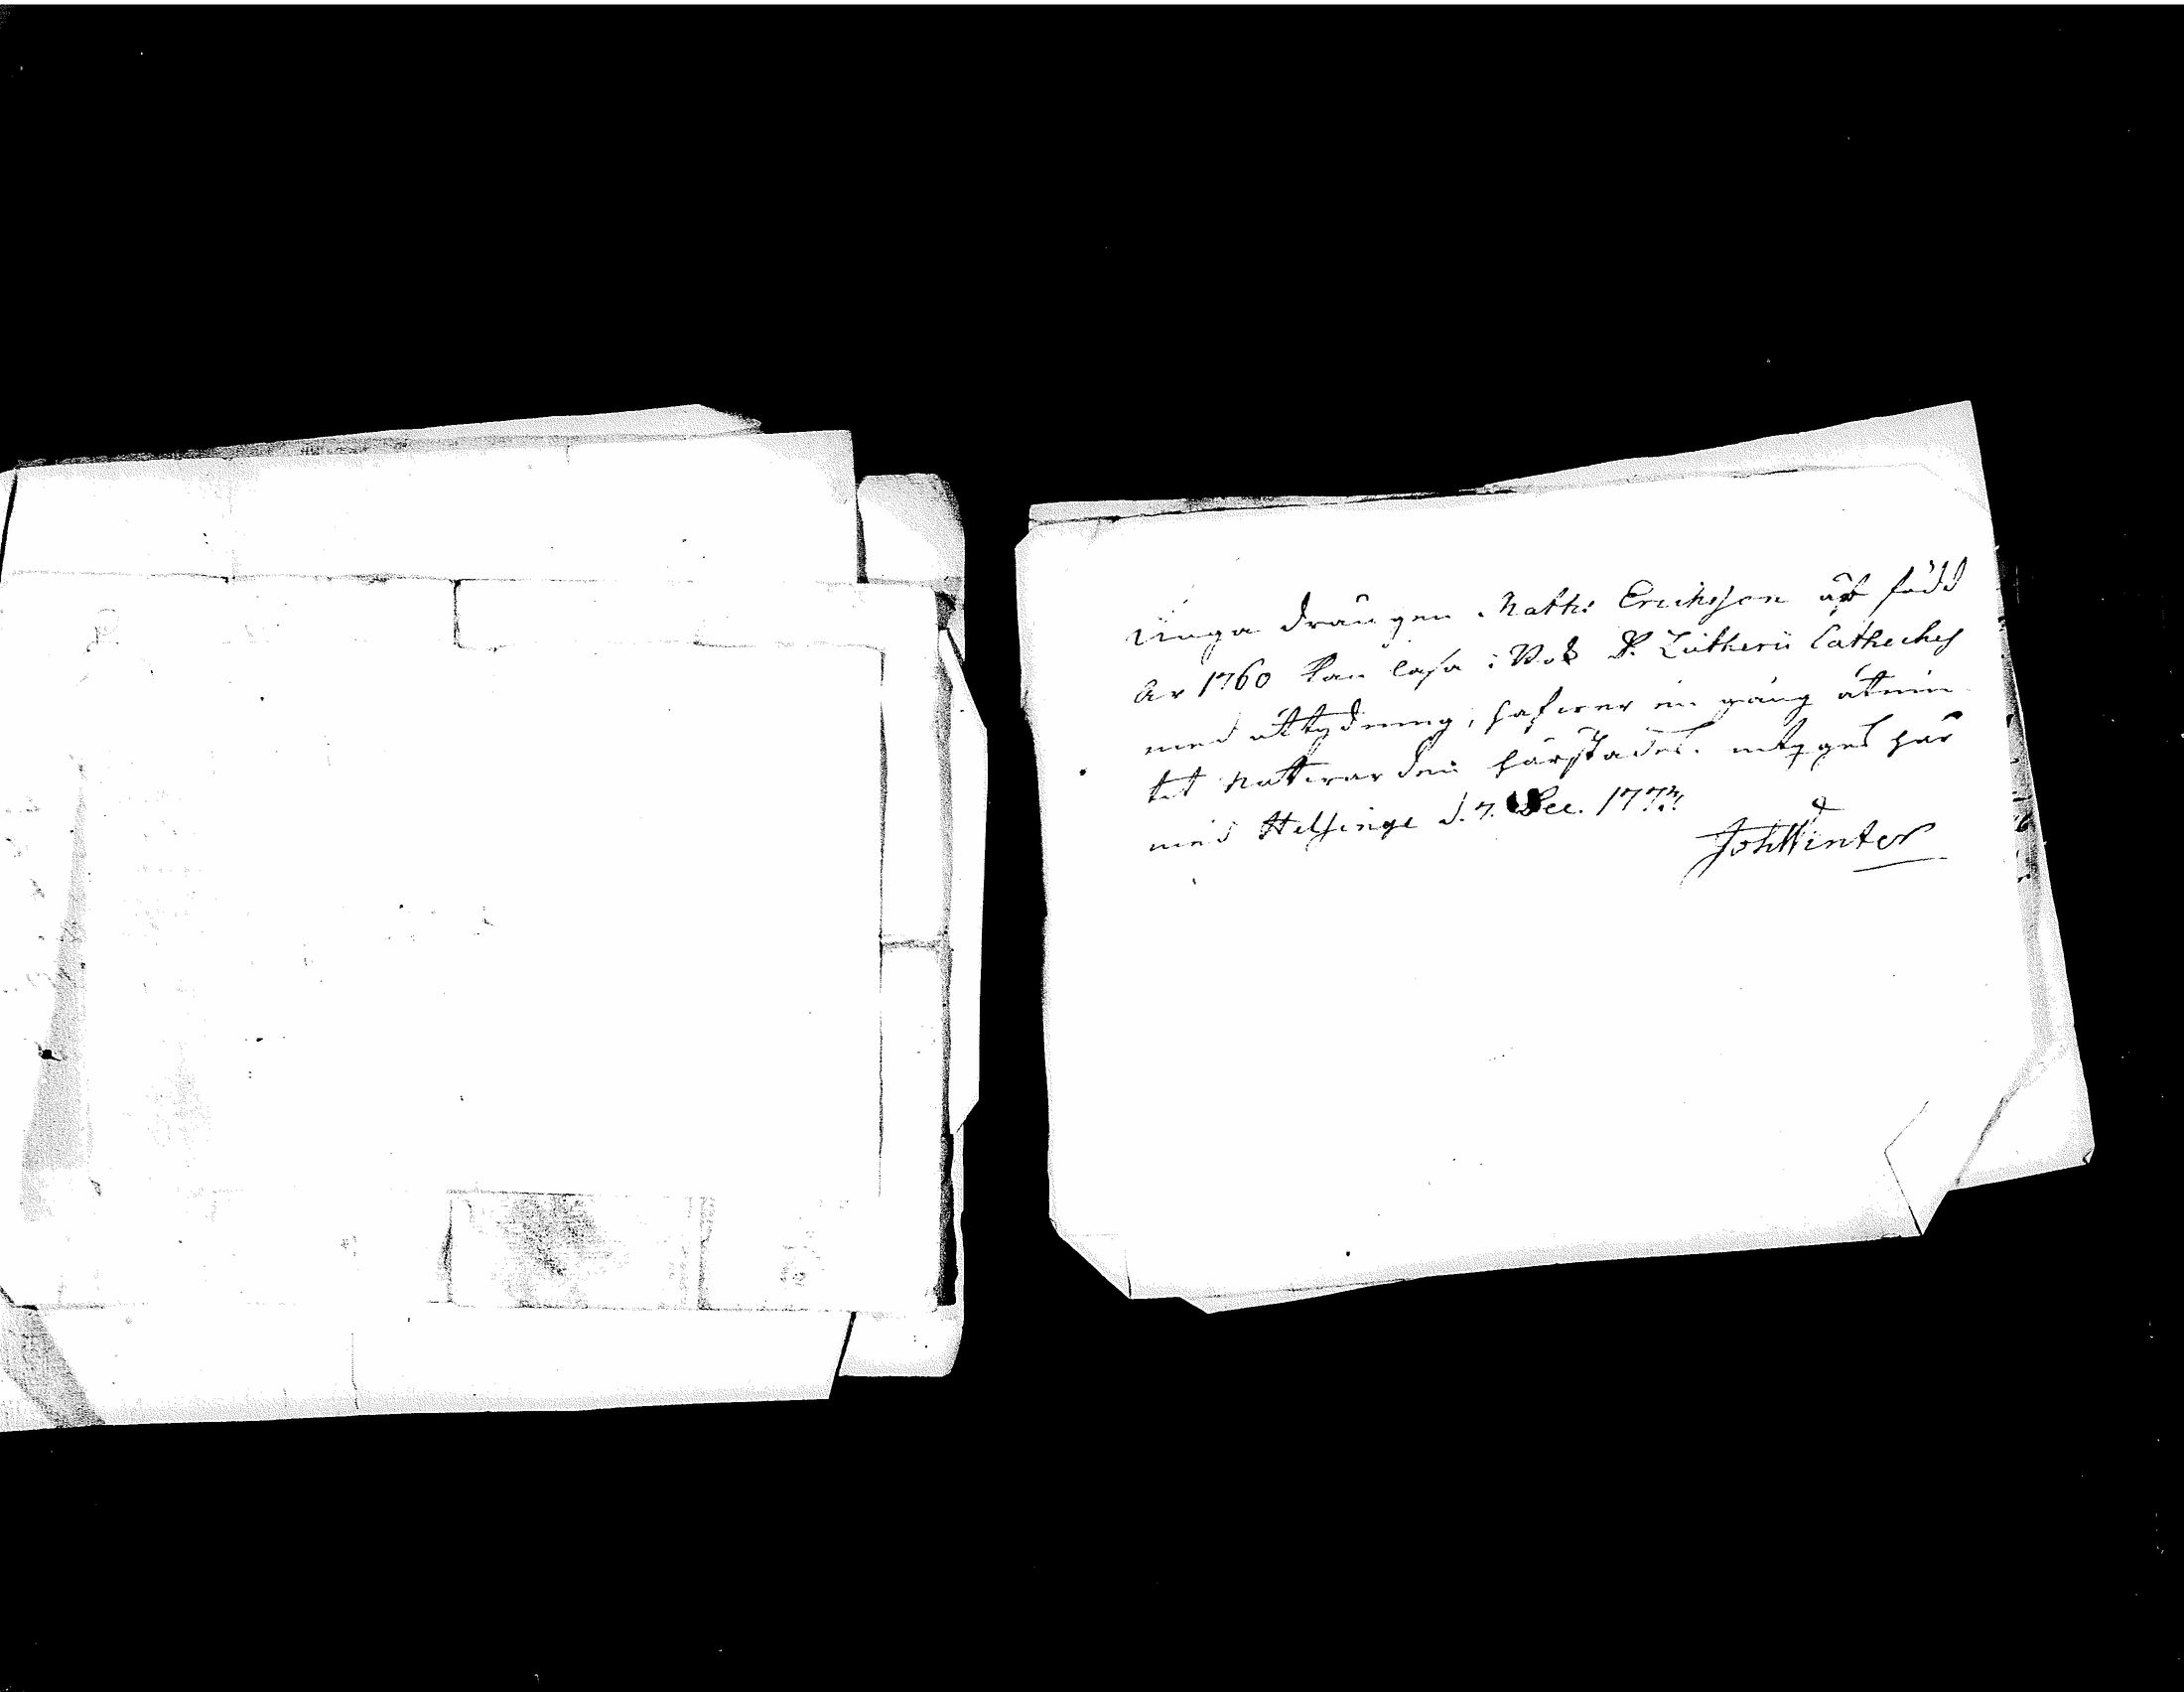 Unga drängen Math: Erichsson är född
År 1760 kan läsa i Bok D. Lutherii Cateches
med uttydning, hafwer en gång åtniu
tit Nattwarden härstädes. intygas här
med Helsinge d. 7. Dec. 1777
Joh Winter